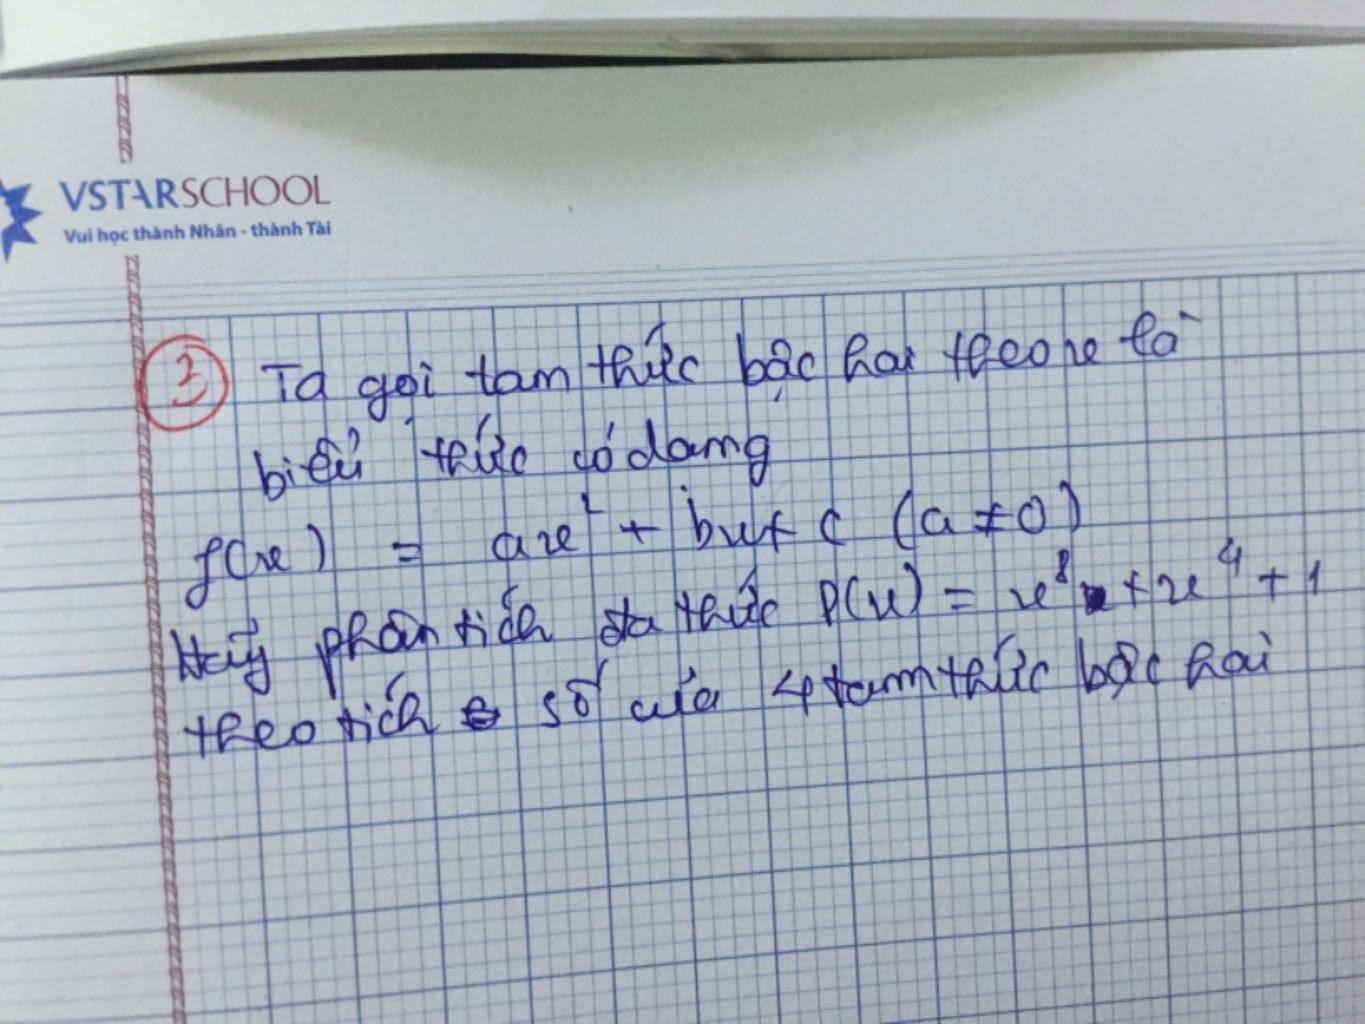 VSTARSCHOOL
Vui học thành Nhân - thành Tài
③ Ta gọi tam thức bậc hai theo x là
biểu thức có dạng
f(x) = ax² + bx + c (a ≠ 0)
Hãy phân tích đa thức P(x) = x⁸ + x⁴ + 1
theo tích số của 4 tam thức bậc hai